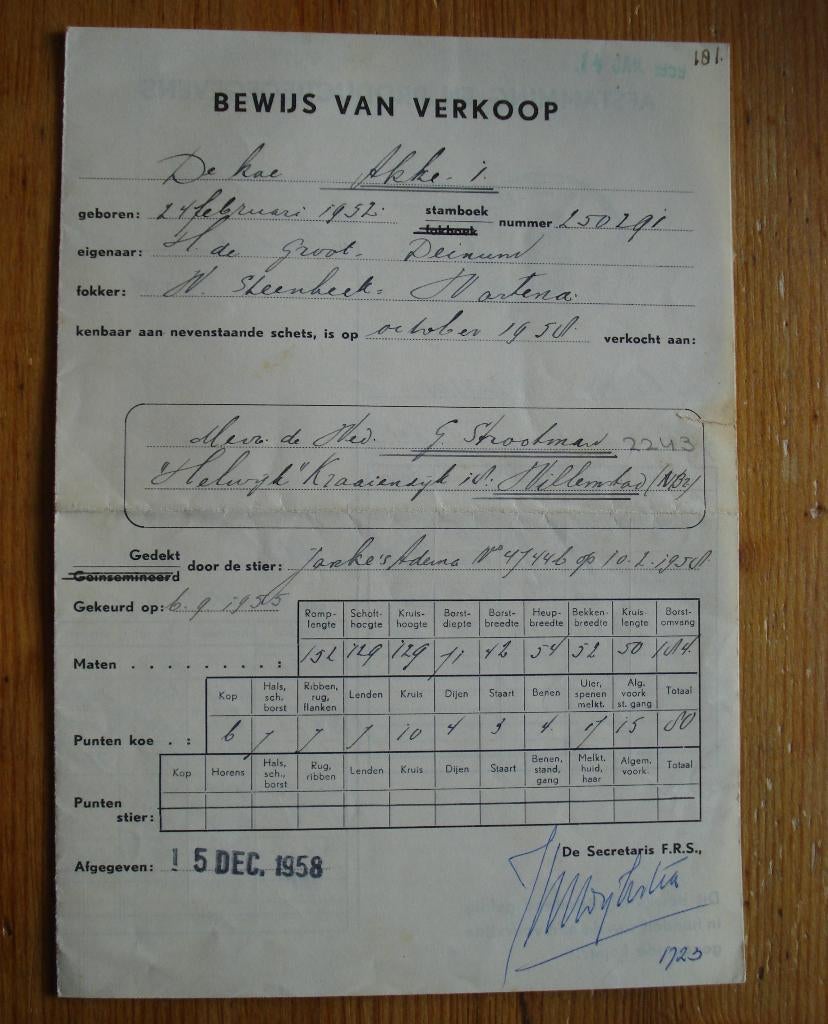 181.
BEWIJS VAN VERKOOP
De koe Akke 1.
geboren: 24 februari 1952. stamboek fokboek nummer 250291
eigenaar: H. de Groot - Deinum
fokker: W. Steenbeek - Wartena.
kenbaar aan nevenstaande schets, is op october 1958 verkocht aan:
Mevr. de Wed. G. Strootman 2243
"Helwijk" Kraaiendijk Willemstad (NBr)
Gedekt Geïnsemineerd door de stier: Adema No 47446 op 10-2-1958
Gekeurd op: 6.9.1955
Romp-lengte Schoft-hoogte Kruis-hoogte Borst-diepte Borst-breedte Heup-breedte Bekken-breedte Kruis-lengte Borst-omvang
Maten . . . . . . . . . : 152 129 129 71 42 54 52 50 184.
Kop Hals, sch. borst Ribben, rug, flanken Lenden Kruis Dijen Staart Benen Uier, spenen melkt. Alg. voork st. gang Totaal
Punten koe . : 6 7 7 7 10 4 3 4. 17 15 80
Kop Horens Hals, sch., borst Rug, ribben Lenden Kruis Dijen Staart Benen, stand, gang Melkt. huid, haar Algem. voork. Totaal
Punten stier:
Afgegeven: 15 DEC. 1958
De Secretaris F.R.S.,
1723